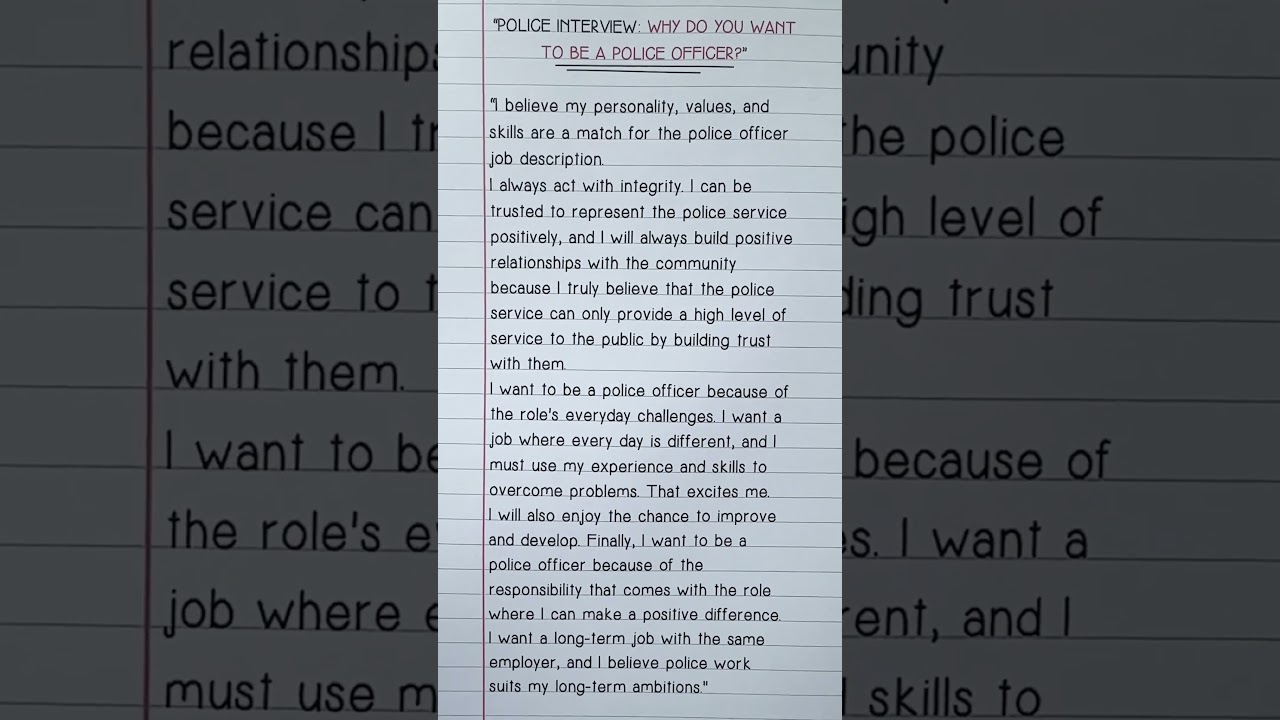 "POLICE INTERVIEW: WHY DO YOU WANT
TO BE A POLICE OFFICER?"
"I believe my personality, values, and
skills are a match for the police officer
job description.
I always act with integrity. I can be
trusted to represent the police service
positively, and I will always build positive
relationships with the community
because I truly believe that the police
service can only provide a high level of
service to the public by building trust
with them.
I want to be a police officer because of
the role's everyday challenges. I want a
job where every day is different, and I
must use my experience and skills to
overcome problems. That excites me.
I will also enjoy the chance to improve
and develop. Finally, I want to be a
police officer because of the
responsibility that comes with the role
where I can make a positive difference.
I want a long-term job with the same
employer, and I believe police work
suits my long-term ambitions."
relationships
because I tr
service can
service to t
with them.
I want to be
the role's e
job where e
must use m
unity
he police
igh level of
ding trust
because of
es. I want a
rent, and I
skills to